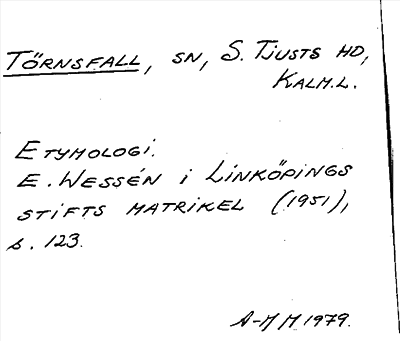 TÖRNSFALL, SN, S. TJUSTS HD,
KALM.L.
ETYMOLOGI.
E. WESSÉN i LINKÖPINGS
STIFTS MATRIKEL (1951),
s. 123.
A-M M 1979.